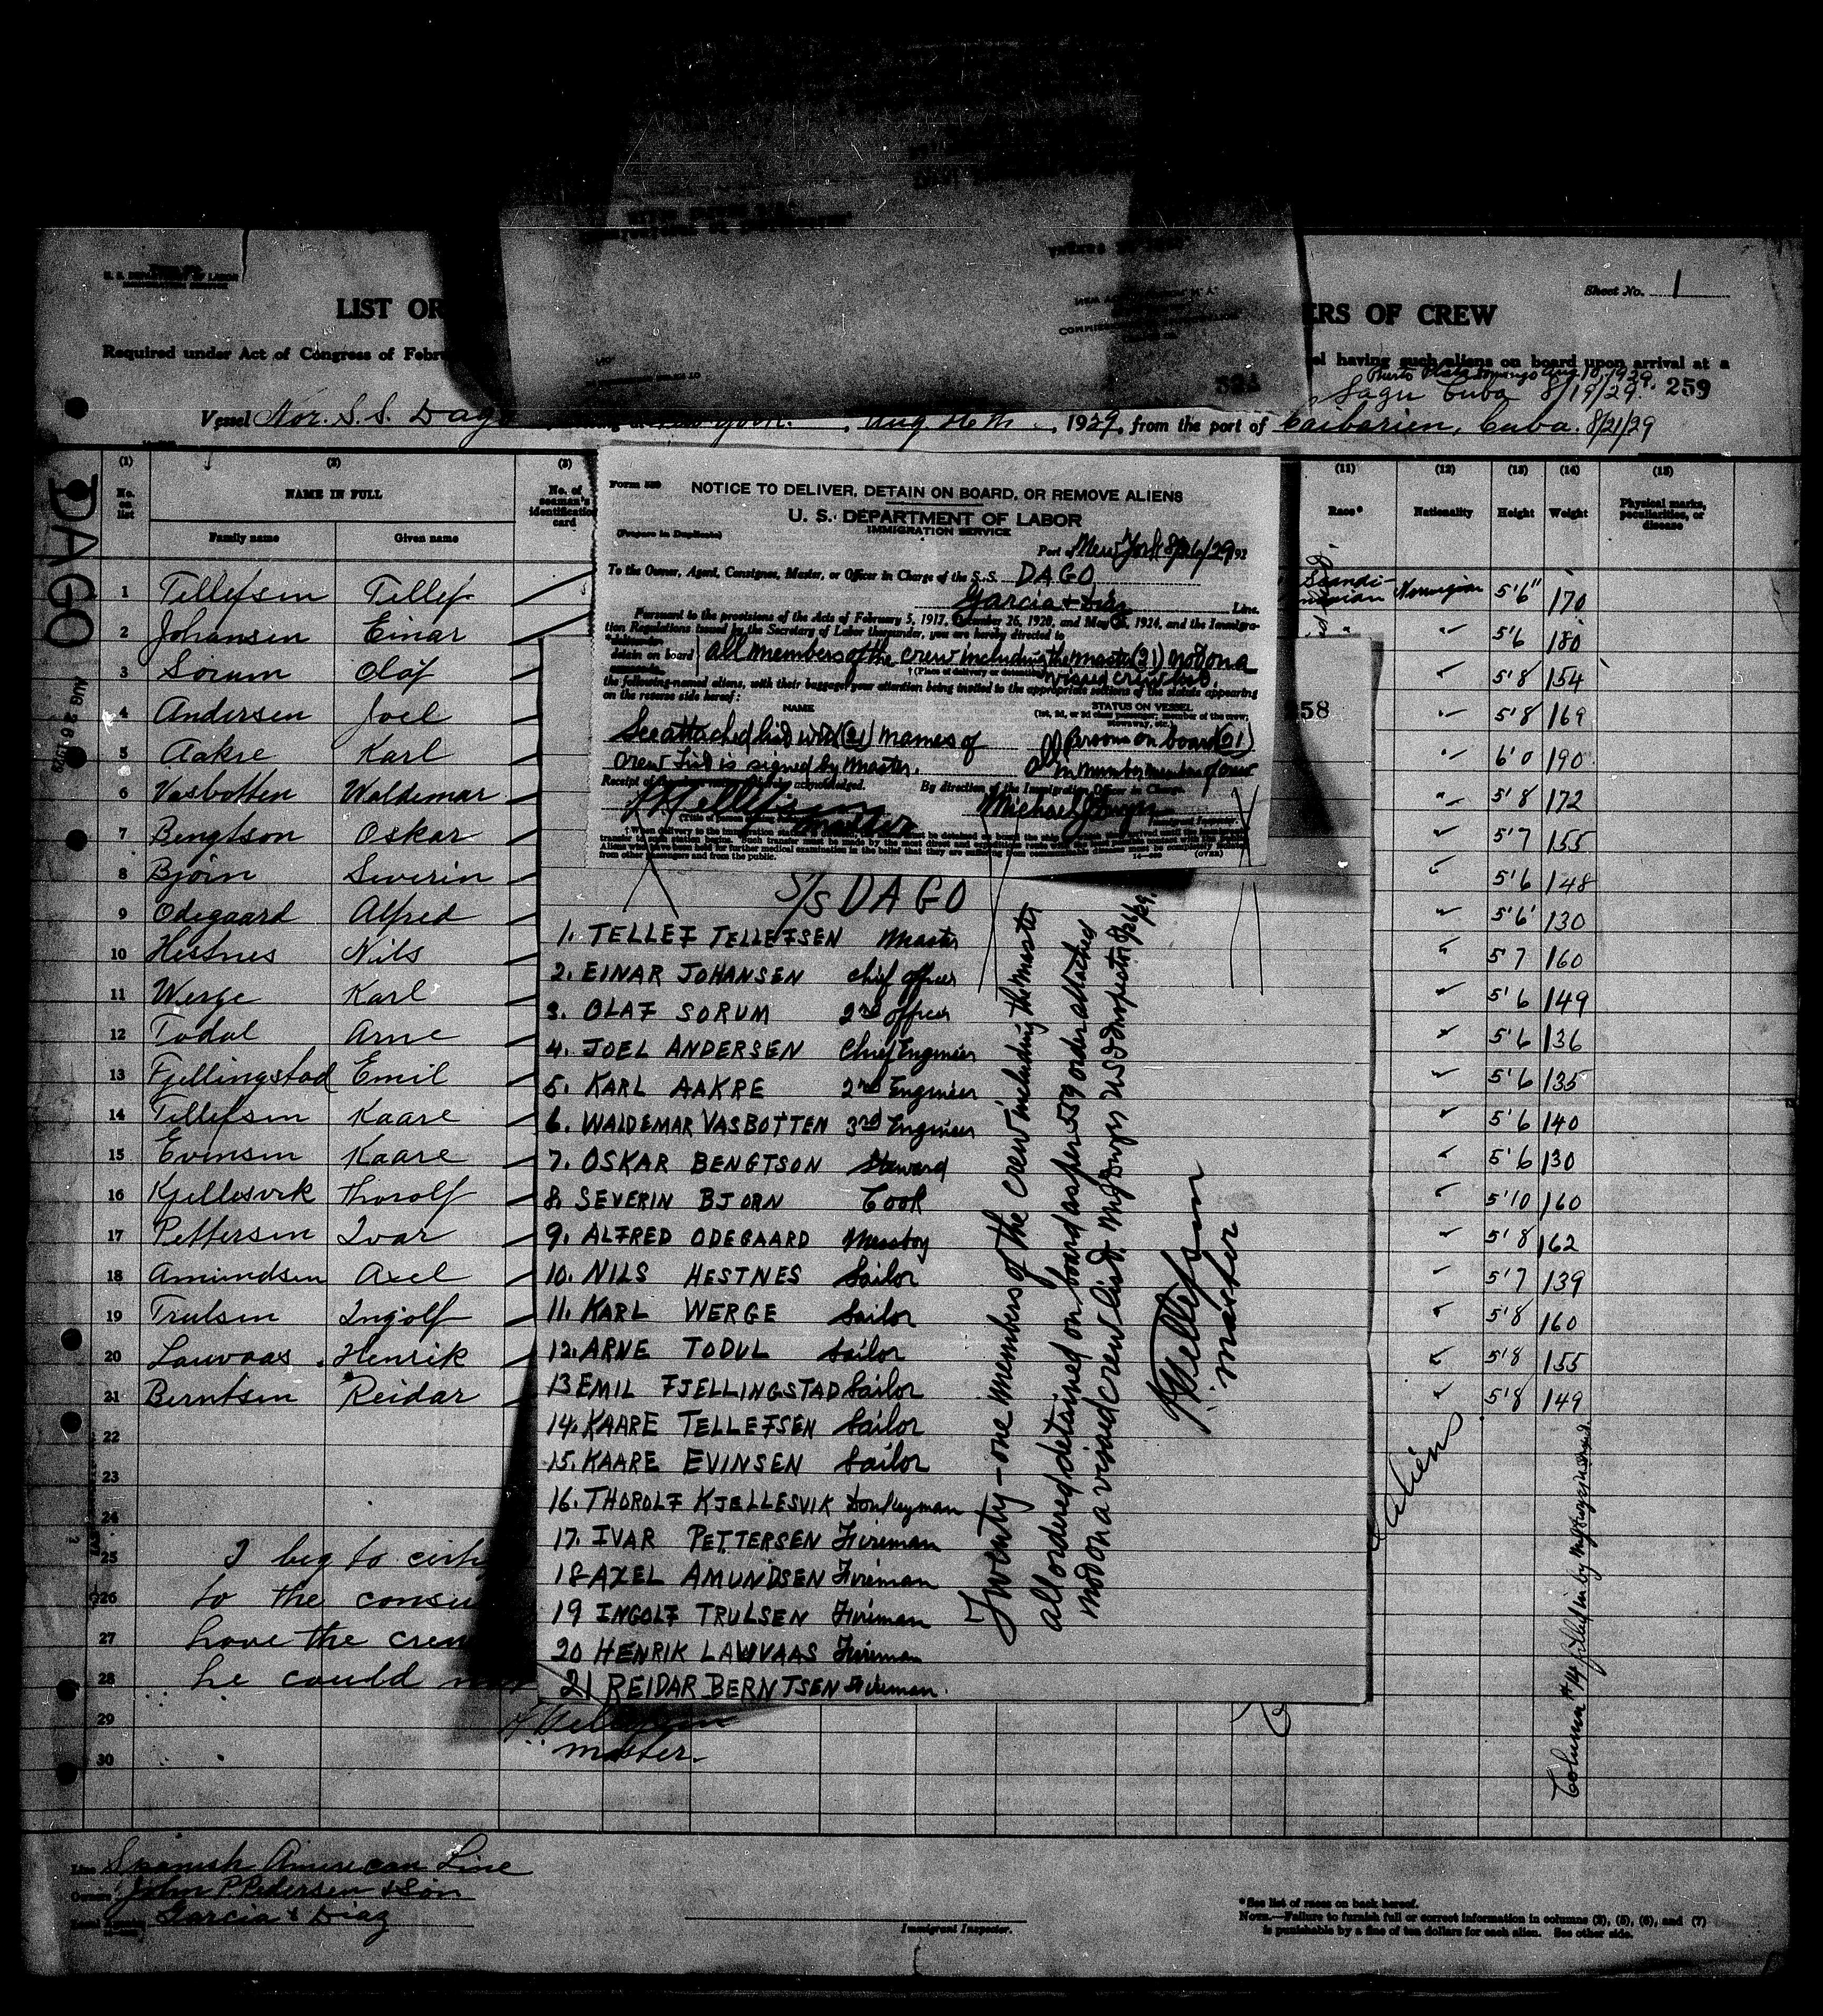 U. S. DEPARTMENT OF LABOR
IMMIGRATION SERVICE
Sheet No. 1
LIST OR
ERS OF CREW
Required under Act of Congress of Febru
el having such aliens on board upon arrival at a
Puerto Plata Domingo Aug 10, 1929.
Sagu Cuba 8/19/29. 259
Vessel Nor. S.S. Dago
, Aug 26th, 1929, from the port of Caibarien, Cuba. 8/21/29
DAGO
AUG 26 1929
(1) (2) (3) (11) (12) (13) (14) (15)
No. on list
NAME IN FULL
Family name Given name
No. of seaman's identification card
Race* Nationality Height Weight Physical marks, peculiarities, or disease
1 Tellefsen Tellef Scandinavian Norwegian 5'6" 170
2 Johansen Einar " 5'6 180
3 Sorum Olaf " 5'8 154
4 Andersen Joel " 5'8 169
5 Aakre Karl " 6'0 190
6 Vasbotten Waldemar " 5'8 172
7 Bengtson Oskar " 5'7 155
8 Bjorn Severin " 5'6 148
9 Odegaard Alfred " 5'6' 130
10 Hestnes Nils " 5 7 160
11 Werge Karl " 5'6 149
12 Todal Arne " 5'6 136
13 Fjellingstad Emil " 5'6 135
14 Tellefsen Kaare " 5'6 140
15 Evensen Kaare " 5'6 130
16 Kjellesvik Thorolf " 5'10 160
17 Pettersen Ivar " 5'8 162
18 Amundsen Axel " 5'7 139
19 Trulsen Ingolf " 5'8 160
20 Lauvaas Henrik " 5'8 155
21 Berntsen Reidar " 5'8 149
22
23
24
25 I beg to certify
26 to the consu
27 have the crew
28 he could
29
30
T Tellefsen
master.
Form 559
NOTICE TO DELIVER, DETAIN ON BOARD, OR REMOVE ALIENS
U. S. DEPARTMENT OF LABOR
IMMIGRATION SERVICE
(Prepare in Duplicate)
Port of New York 8/26/29 192
To the Owner, Agent, Consignee, Master, or Officer in Charge of the S.S. DAGO
Garcia & Diaz Line.
Pursuant to the provisions of the Acts of February 5, 1917, December 26, 1920, and May 26, 1924, and the Immigra-
tion Regulations issued by the Secretary of Labor thereunder, you are hereby directed to
detain on board all members of the crew including the master (21) not on a
visaed crew list.
† (Place of delivery or detention)
the following-named aliens, with their baggage, your attention being invited to the appropriate sections of the statute appearing
on the reverse side hereof:
NAME STATUS ON VESSEL
(1st, 2d, or 3d class passenger, member of the crew, stowaway, etc.)
See attached list with (21) names of
persons on board (21)
crew List is signed by Master.
in number members of crew
Receipt of acknowledged. By direction of the Immigration Officer in Charge.
T Tellefsen Master
Michael J Dwyer
from other passengers and from the public. 14—686 (OVER)
258
S/S DAGO
1. TELLEF TELLEFSEN Master
2. EINAR JOHANSEN chief officer
3. OLAF SORUM 2nd officer
4. JOEL ANDERSEN Chief Engineer
5. KARL AAKRE 2nd Engineer
6. WALDEMAR VASBOTTEN 3rd Engineer
7. OSKAR BENGTSON Steward
8. SEVERIN BJORN Cook
9. ALFRED ODEGAARD Messboy
10. NILS HESTNES Sailor
11. KARL WERGE Sailor
12. ARNE TODUL Sailor
13 EMIL FJELLINGSTAD Sailor
14. KAARE TELLEFSEN Sailor
15. KAARE EVINSEN Sailor
16. THOROLF KJELLESVIK Donkeyman
17. IVAR PETTERSEN Fireman
18 AXEL AMUNDSEN Fireman
19 INGOLF TRULSEN Fireman
20 HENRIK LAWVAAS Fireman
21 REIDAR BERNTSEN Fireman.
Twenty-one members of the crew including the master
all ordered detained on board as per 559 order attached
not on a visaed crew list. M J Dwyer US Inspector 8/26/29.
T Tellefsen
master
Aliens
Column #14 filled in by M J Dwyer
Line Spanish American Line
Owners John P. Pedersen & Son
Local Agents Garcia & Diaz
Immigrant Inspector.
* See list of races on back hereof.
NOTE.—Failure to furnish full or correct information in columns (2), (5), (6), and (7)
is punishable by a fine of ten dollars for each alien. See other side.